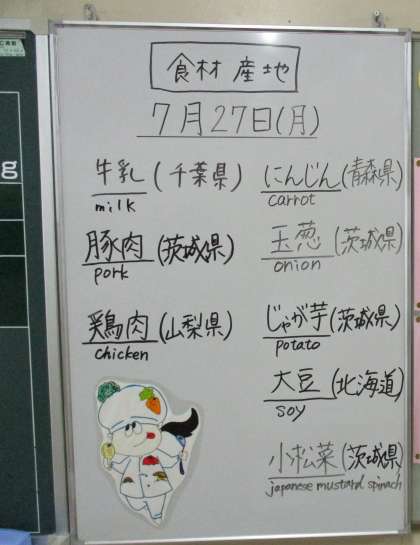 食材 産地
7月27日(月)
牛乳(千葉県)
milk
豚肉(茨城県)
pork
鶏肉(山梨県)
chicken
にんじん(青森県)
carrot
玉葱(茨城県)
onion
じゃが芋(茨城県)
potato
大豆(北海道)
soy
小松菜(茨城県)
japanese mustard spinach
g